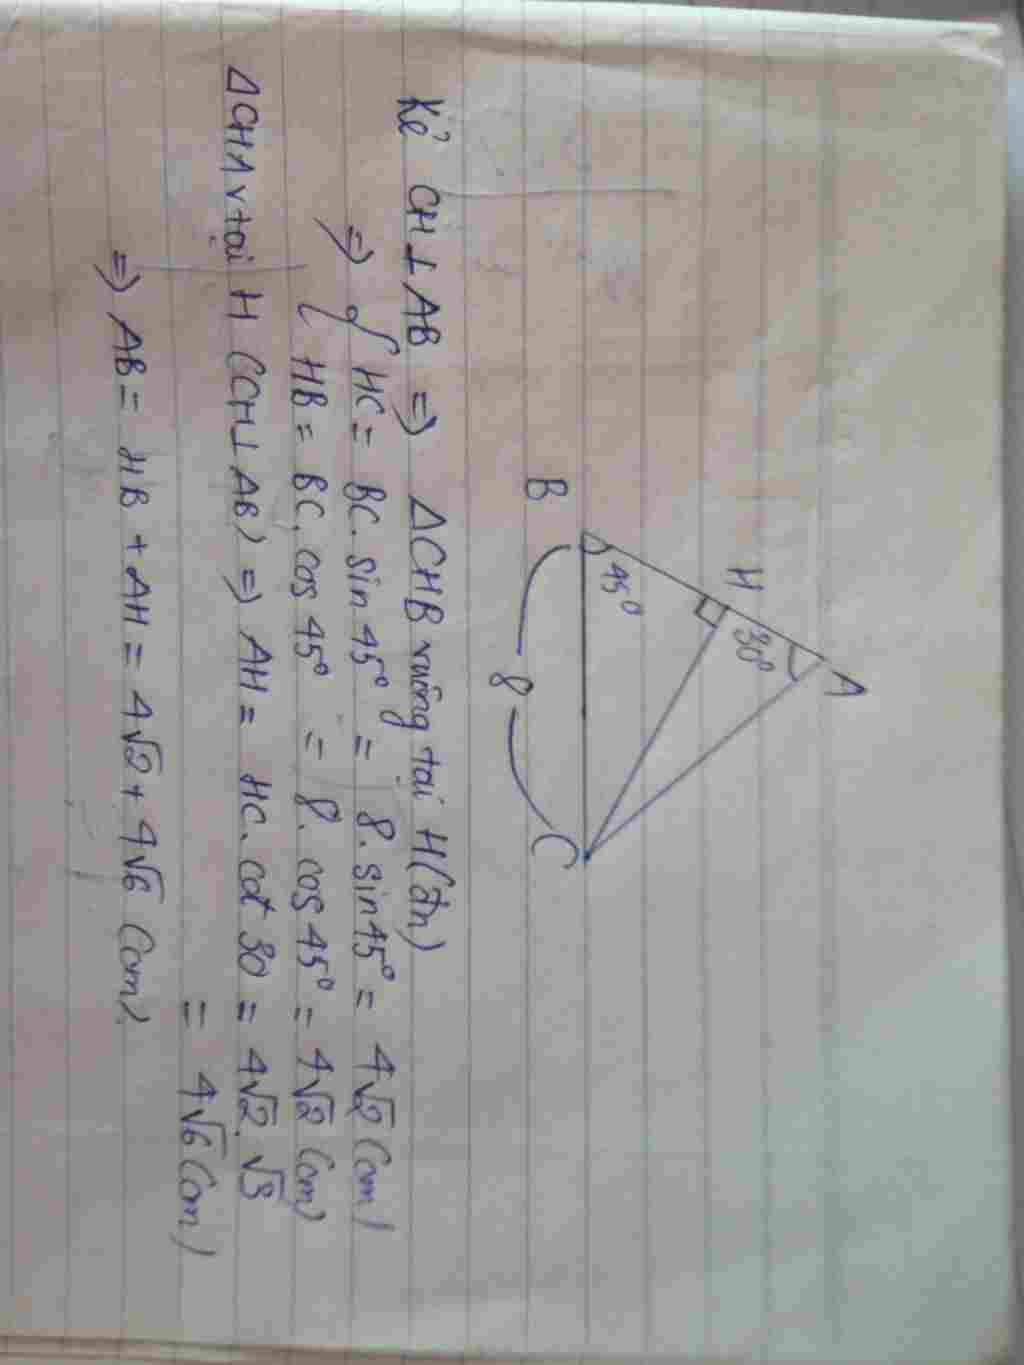 A
H
30°
45°
B
C
8
Kẻ CH ⊥ AB => ΔCHB vuông tại H (đn)
=> { HC = BC. sin 45° = 8. sin 45° = 4√2 (cm)
HB = BC. cos 45° = 8. cos 45° = 4√2 (cm)
ΔCHA v tại H (CH⊥AB) => AH = HC. cot 30 = 4√2. √3
= 4√6 (cm)
=> AB = HB + AH = 4√2 + 4√6 (cm).